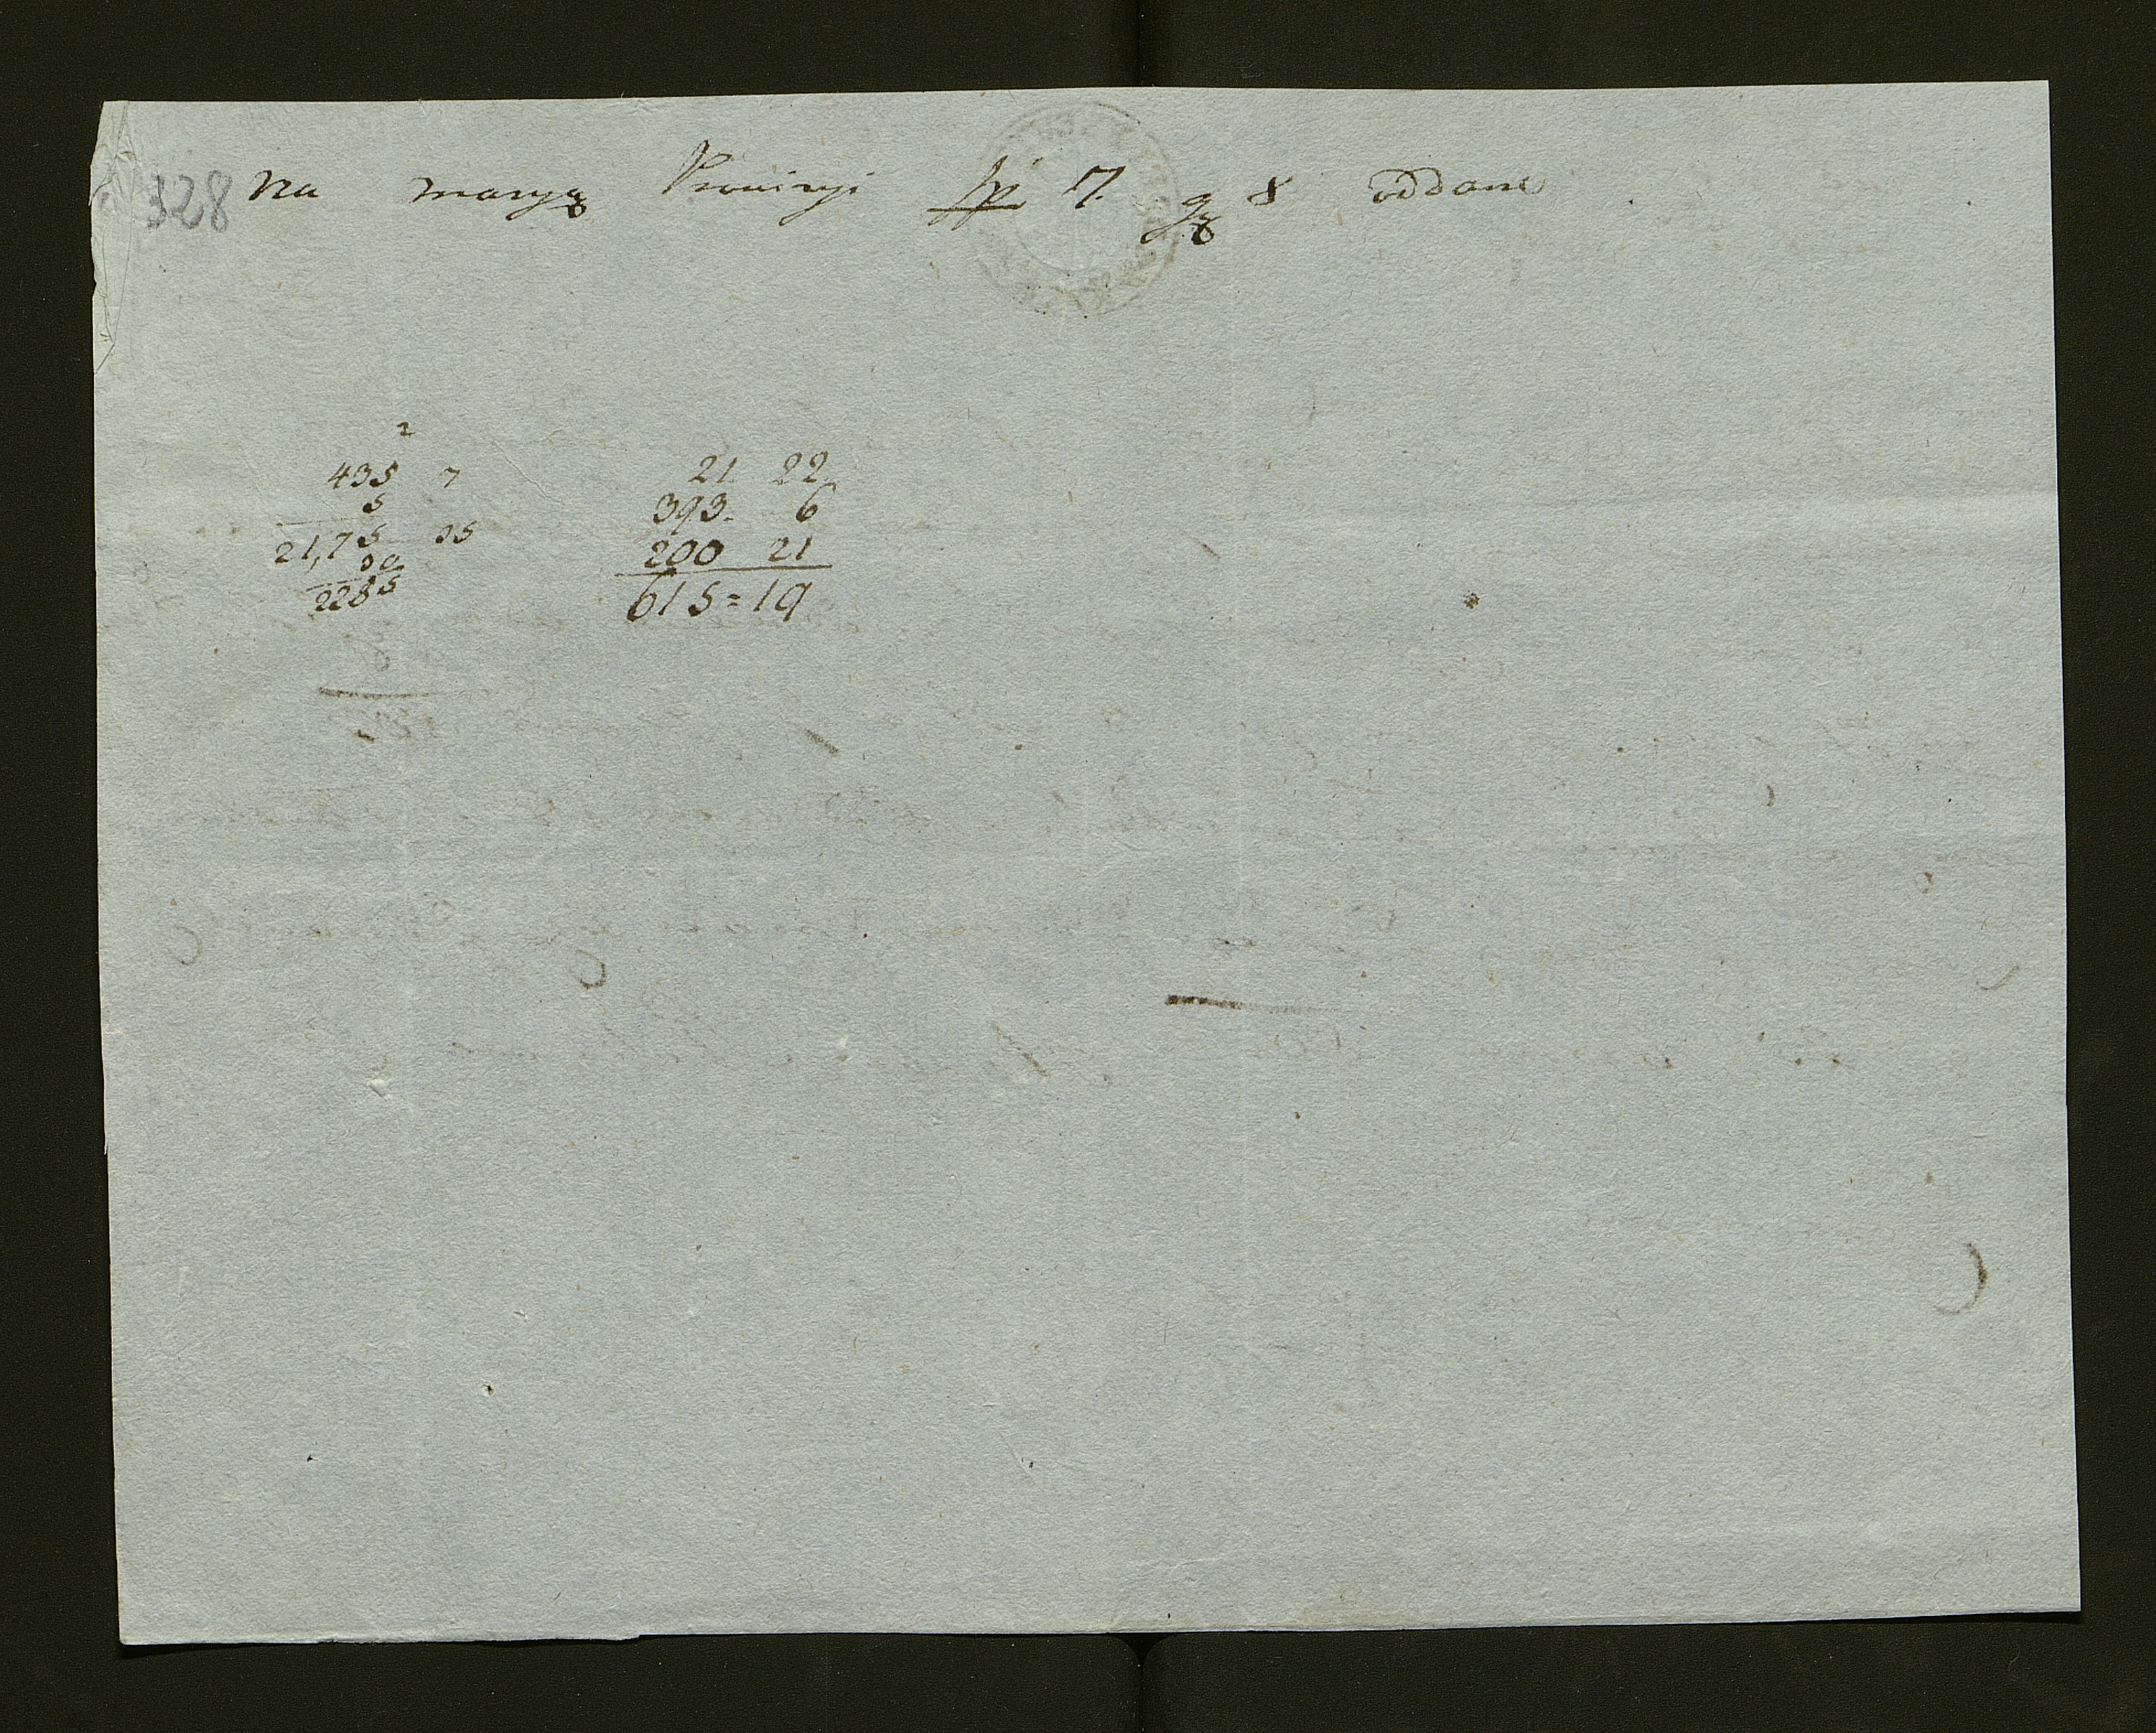 328 Na Prowizyi 7. gz 8 oddane
2
435 7
5
21,75 35
30
2285
21. 22.
393. 6
200 21
615=19